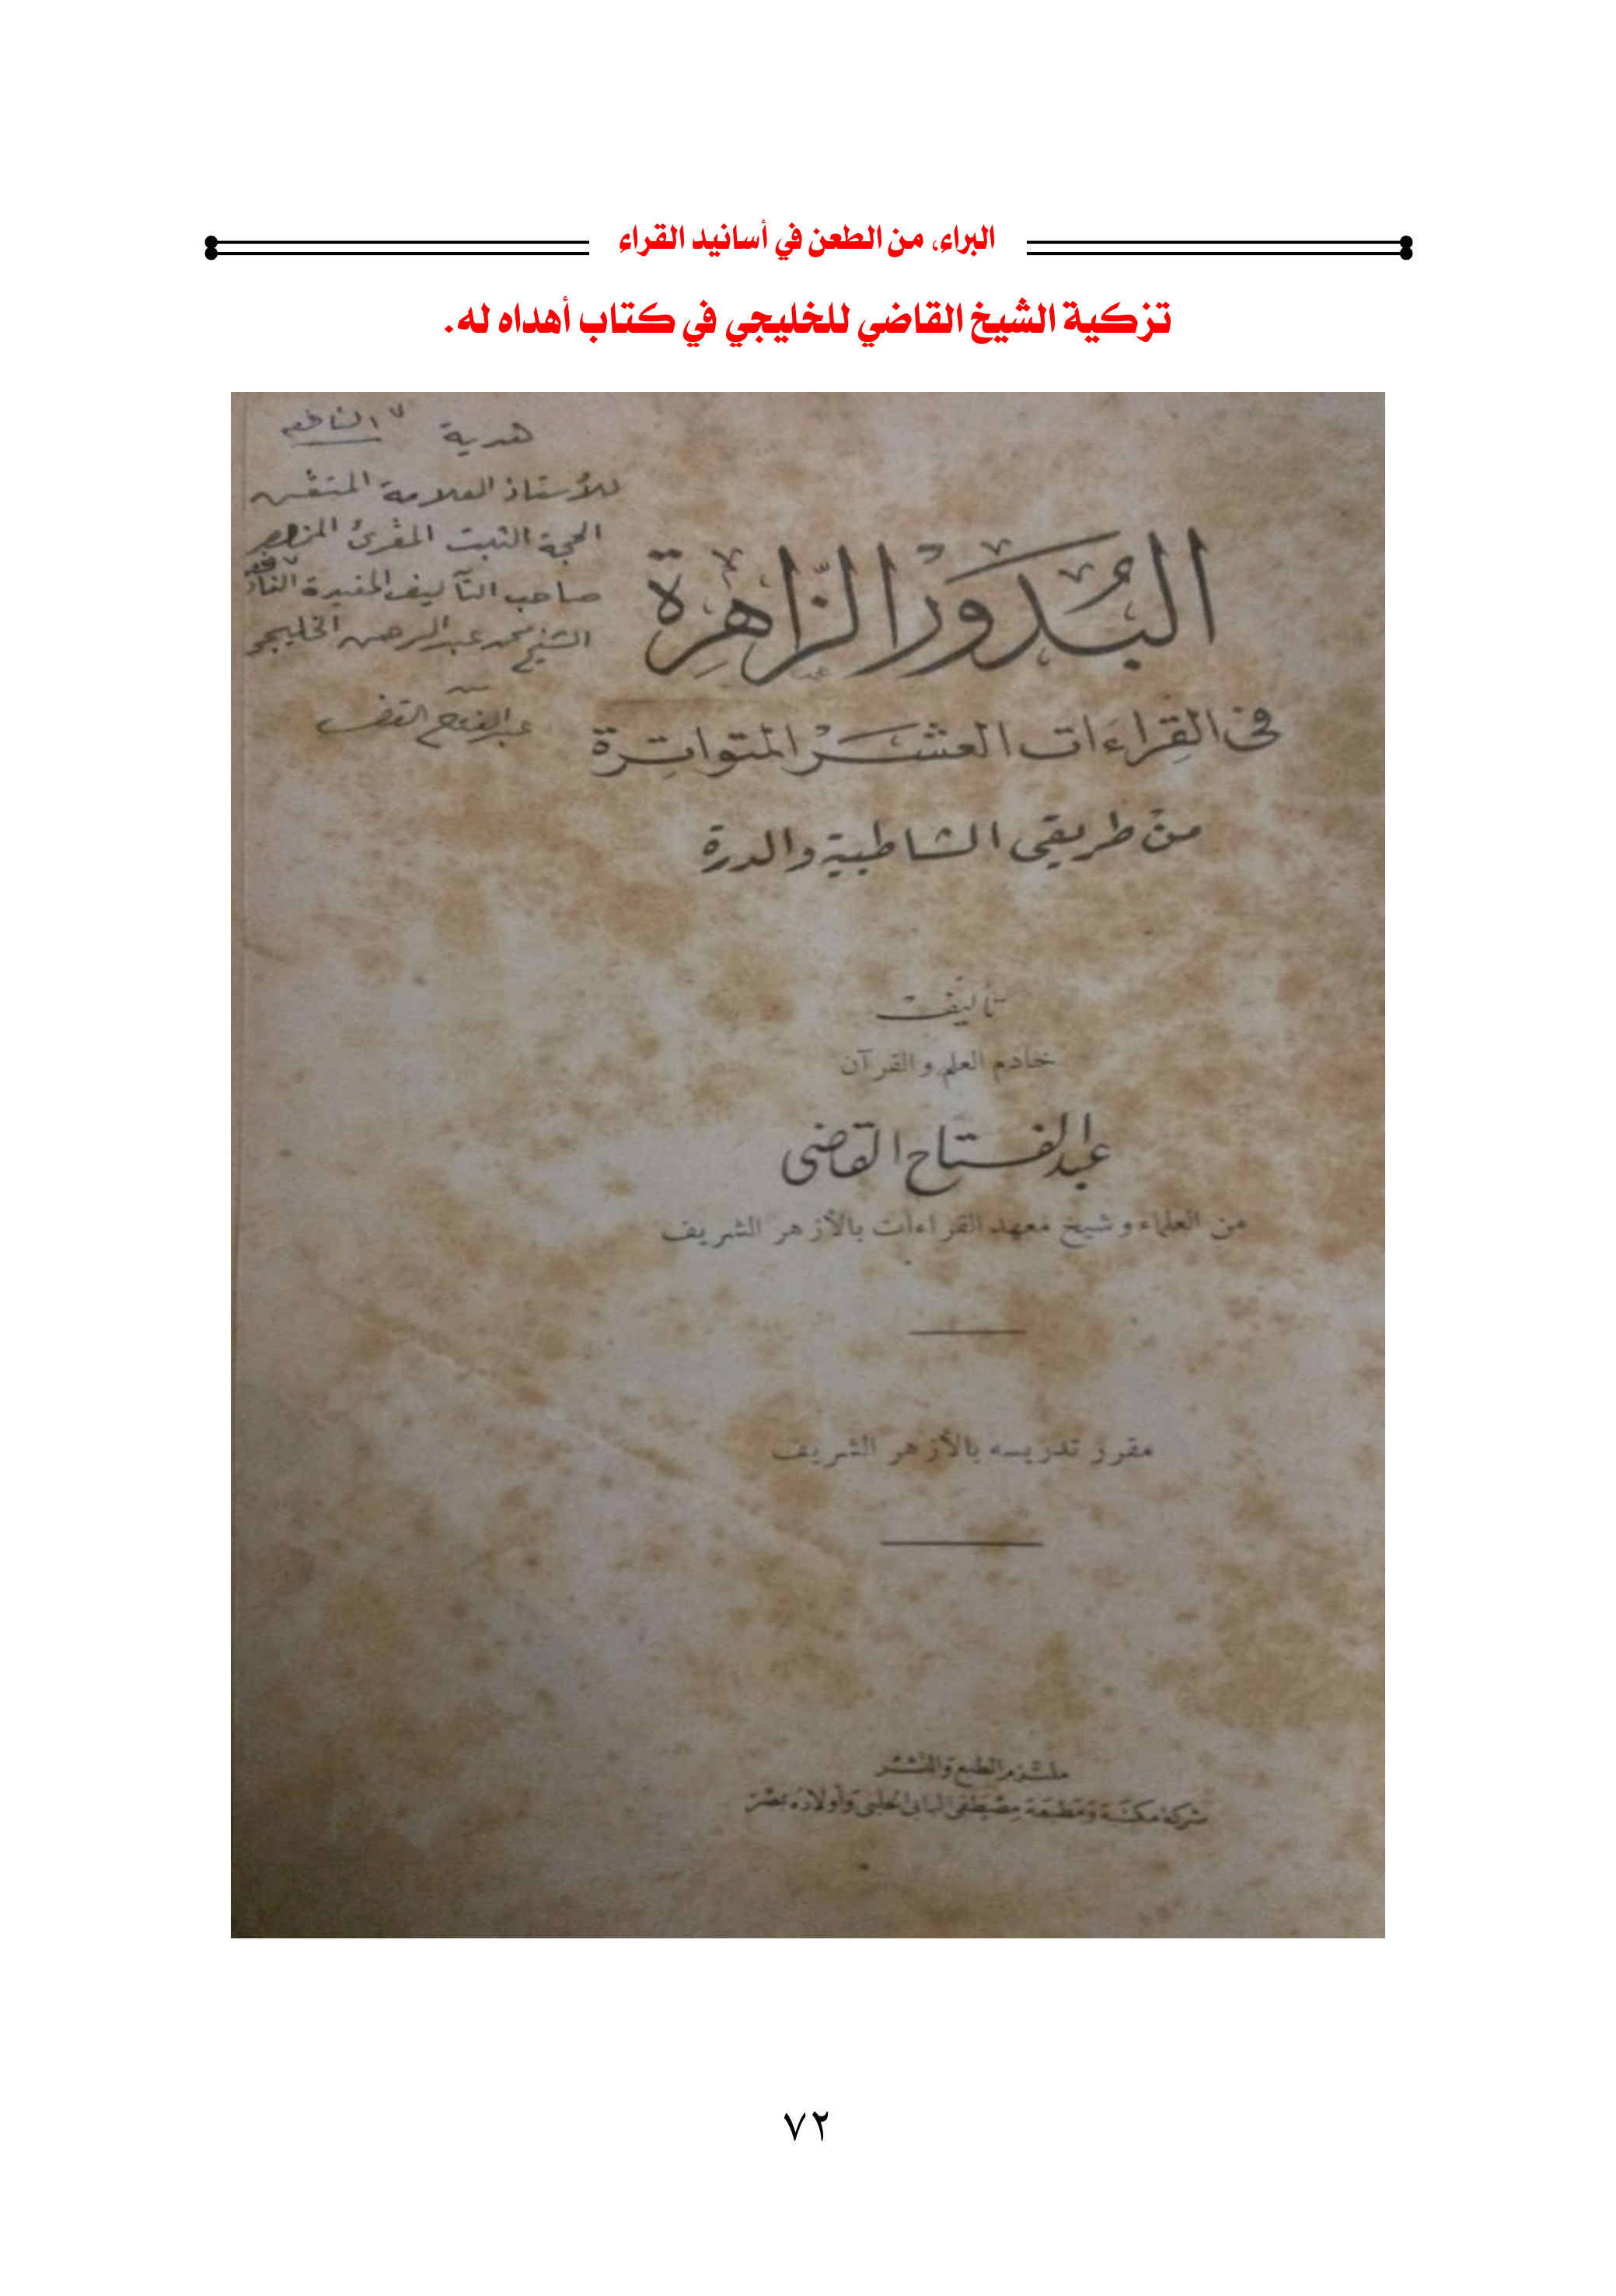 البراء، من الطعن في أسانيد القراء
تزكية الشيخ القاضي للخليجي في كتاب أهداه له.
هدية
للأستاذ العلامة المتقن
الحجة الثبت المقرئ
صاحب التآليف المفيدة
الشيخ محمد عبد الرحمن الخليجي
عبد الفتاح القاضى
البُدُورُ الزّاهِرَة
فى القِراءَات العشْر المتواتِرة
من طريقى الشاطبية والدرة
تأليف
خادم العلم والقرآن
عبد الفتاح القاضى
من العلماء وشيخ معهد القراءات بالأزهر الشريف
مقرر تدريسه بالأزهر الشريف
ملتزم الطبع والنشر
شركة مكتبة ومطبعة مصطفى البابى الحلبى وأولاده بمصر
٧٢